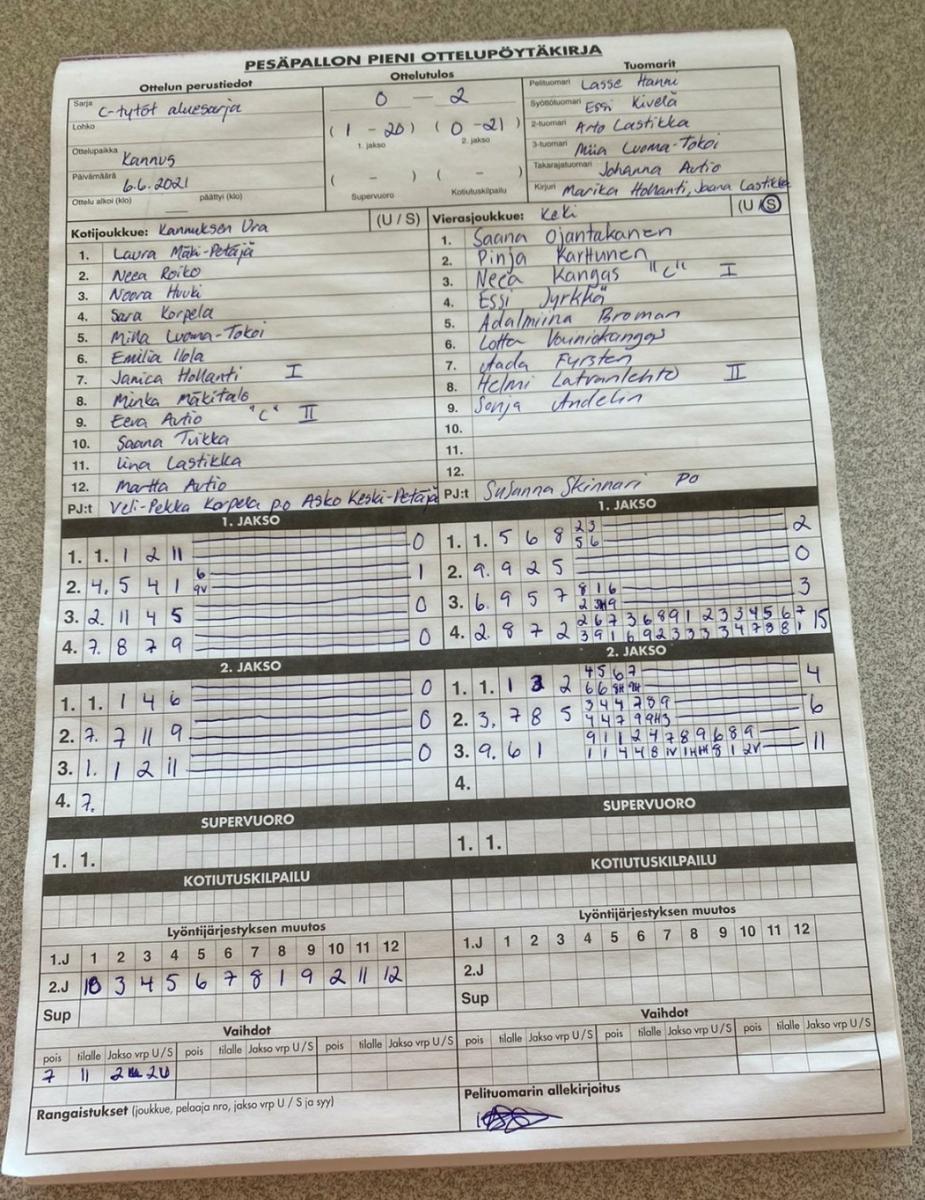 PESÄPALLON PIENI OTTELUPÖYTÄKIRJA
Ottelun perustiedot
Sarja C-tytöt aluesarja
Lohko
Ottelupaikka Kannus
Päivämäärä 6.6.2021
Ottelu alkoi (klo) päättyi (klo)
Ottelutulos
0 - 2
( 1 - 20 ) ( 0 - 21 )
1. jakso 2. jakso
( - ) ( - )
Supervuoro Kotiutuskilpailu
Tuomarit
Pelituomari Lasse Hanni
Syöttötuomari Essi Kivelä
2-tuomari Arto Lastikka
3-tuomari Miia Luoma-Tokoi
Takarajatuomari Johanna Autio
Kirjuri Marika Hollanti, Jaana Lastikka
Kotijoukkue: Kannuksen Ura (U / S)
1. Laura Mäki-Petäjä
2. Neea Roiko
3. Noora Huuki
4. Sara Korpela
5. Milla Luoma-Tokoi
6. Emilia Ilola
7. Janica Hollanti I
8. Minka Mäkitalo
9. Eeva Autio "C" II
10. Saana Tuikka
11. Iina Lastikka
12. Martta Autio
PJ:t Veli-Pekka Korpela po Asko Keski-Petäjä
Vierasjoukkue: Keki (U / S)
1. Saana Ojantakanen
2. Pinja Karttunen
3. Neea Kangas "C" I
4. Essi Jyrkkä
5. Adalmiina Broman
6. Lotta Vainiokangas
7. Aada Fyrsten
8. Helmi Latvanlehto II
9. Sonja Andelin
10.
11.
12.
PJ:t Susanna Skinnari po
1. JAKSO
1. 1. 1 2 11 0
2. 4. 5 4 1 6 1
9V
3. 2. 11 4 5 0
4. 7. 8 7 9 0
2. JAKSO
1. 1. 1 4 6 0
2. 7. 7 11 9 0
3. 1. 1 2 11 0
4. 7.
SUPERVUORO
1. 1.
KOTIUTUSKILPAILU
Lyöntijärjestyksen muutos
1.J 1 2 3 4 5 6 7 8 9 10 11 12
2.J 10 3 4 5 6 7 8 1 9 2 11 12
Sup
Vaihdot
pois tilalle Jakso vrp U/S pois tilalle Jakso vrp U/S pois tilalle Jakso vrp U/S
7 11 2 2U
Rangaistukset (joukkue, pelaaja nro, jakso vrp U / S ja syy)
1. JAKSO
1. 1. 5 6 8 2 3 2
5 6
2. 9. 9 2 5 0
3. 6. 9 5 7 8 1 6 3
4. 2. 8 7 2 2 6 7 3 6 8 9 1 2 3 3 4 5 6 7 15
3 9 1 6 9 2 3 3 3 3 4 7 8 8 1
2. JAKSO
1. 1. 1 3 2 4 5 6 7 4
6 6 8H 9H
2. 3. 7 8 5 3 4 4 7 8 9 6
4 4 7 9 9H 3
3. 9. 6 1 9 1 1 2 4 7 8 9 6 8 9 11
4.
SUPERVUORO
1. 1.
KOTIUTUSKILPAILU
Lyöntijärjestyksen muutos
1.J 1 2 3 4 5 6 7 8 9 10 11 12
2.J
Sup
Vaihdot
pois tilalle Jakso vrp U/S pois tilalle Jakso vrp U/S pois tilalle Jakso vrp U/S
Pelituomarin allekirjoitus